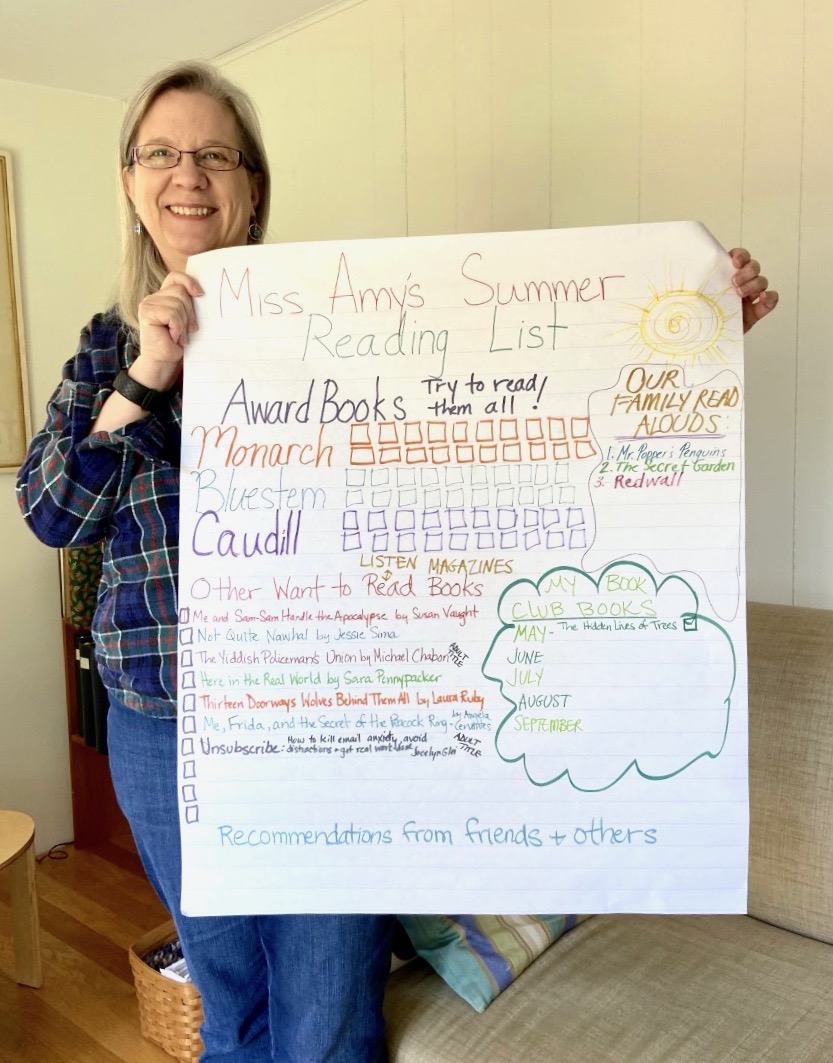 Miss Amy's Summer
Reading List
Award Books Try to read
them all!
Monarch
Bluestem
Caudill
OUR
FAMILY READ
ALOUDS:
1. Mr. Popper's Penguins
2. The Secret Garden
3. Redwall
LISTEN MAGAZINES
Other Want to Read Books
Me and Sam-Sam Handle the Apocalypse by Susan Vaught
Not Quite Nawhal by Jessie Sima
The Yiddish Policeman's Union by Michael Chabon ADULT TITLE
Here in the Real World by Sara Pennypacker
Thirteen Doorways Wolves Behind Them All by Laura Ruby
Me, Frida, and the Secret of the Peacock Ring - by Angela Cervantes
Unsubscribe: How to kill email anxiety, avoid
distractions + get real work done Jocelyn Glei ADULT TITLE
MY BOOK
CLUB BOOKS
MAY - The Hidden Lives of Trees
JUNE
JULY
AUGUST
SEPTEMBER
Recommendations from friends + others